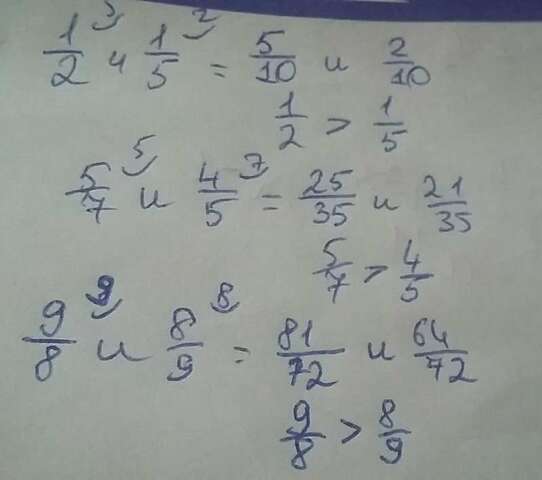 1/2 5) и 1/5 2) = 5/10 и 2/10
1/2 > 1/5
5/7 5) и 4/5 7) = 25/35 и 21/35
5/7 > 4/5
9/8 9) и 8/9 8) = 81/72 и 64/72
9/8 > 8/9